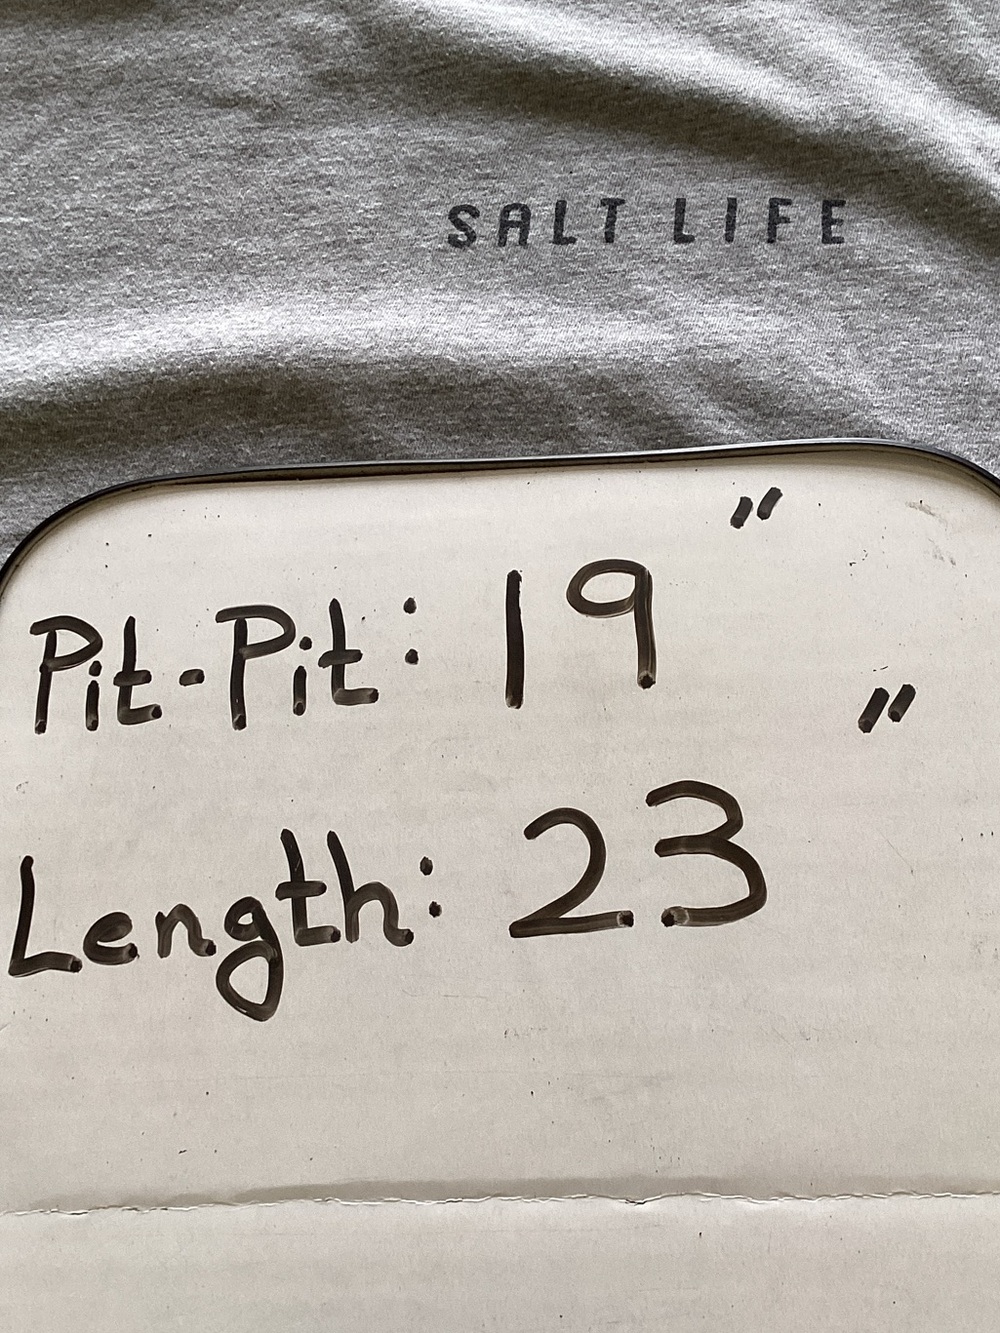 SALT LIFE
Pit-Pit: 19"
Length: 23"